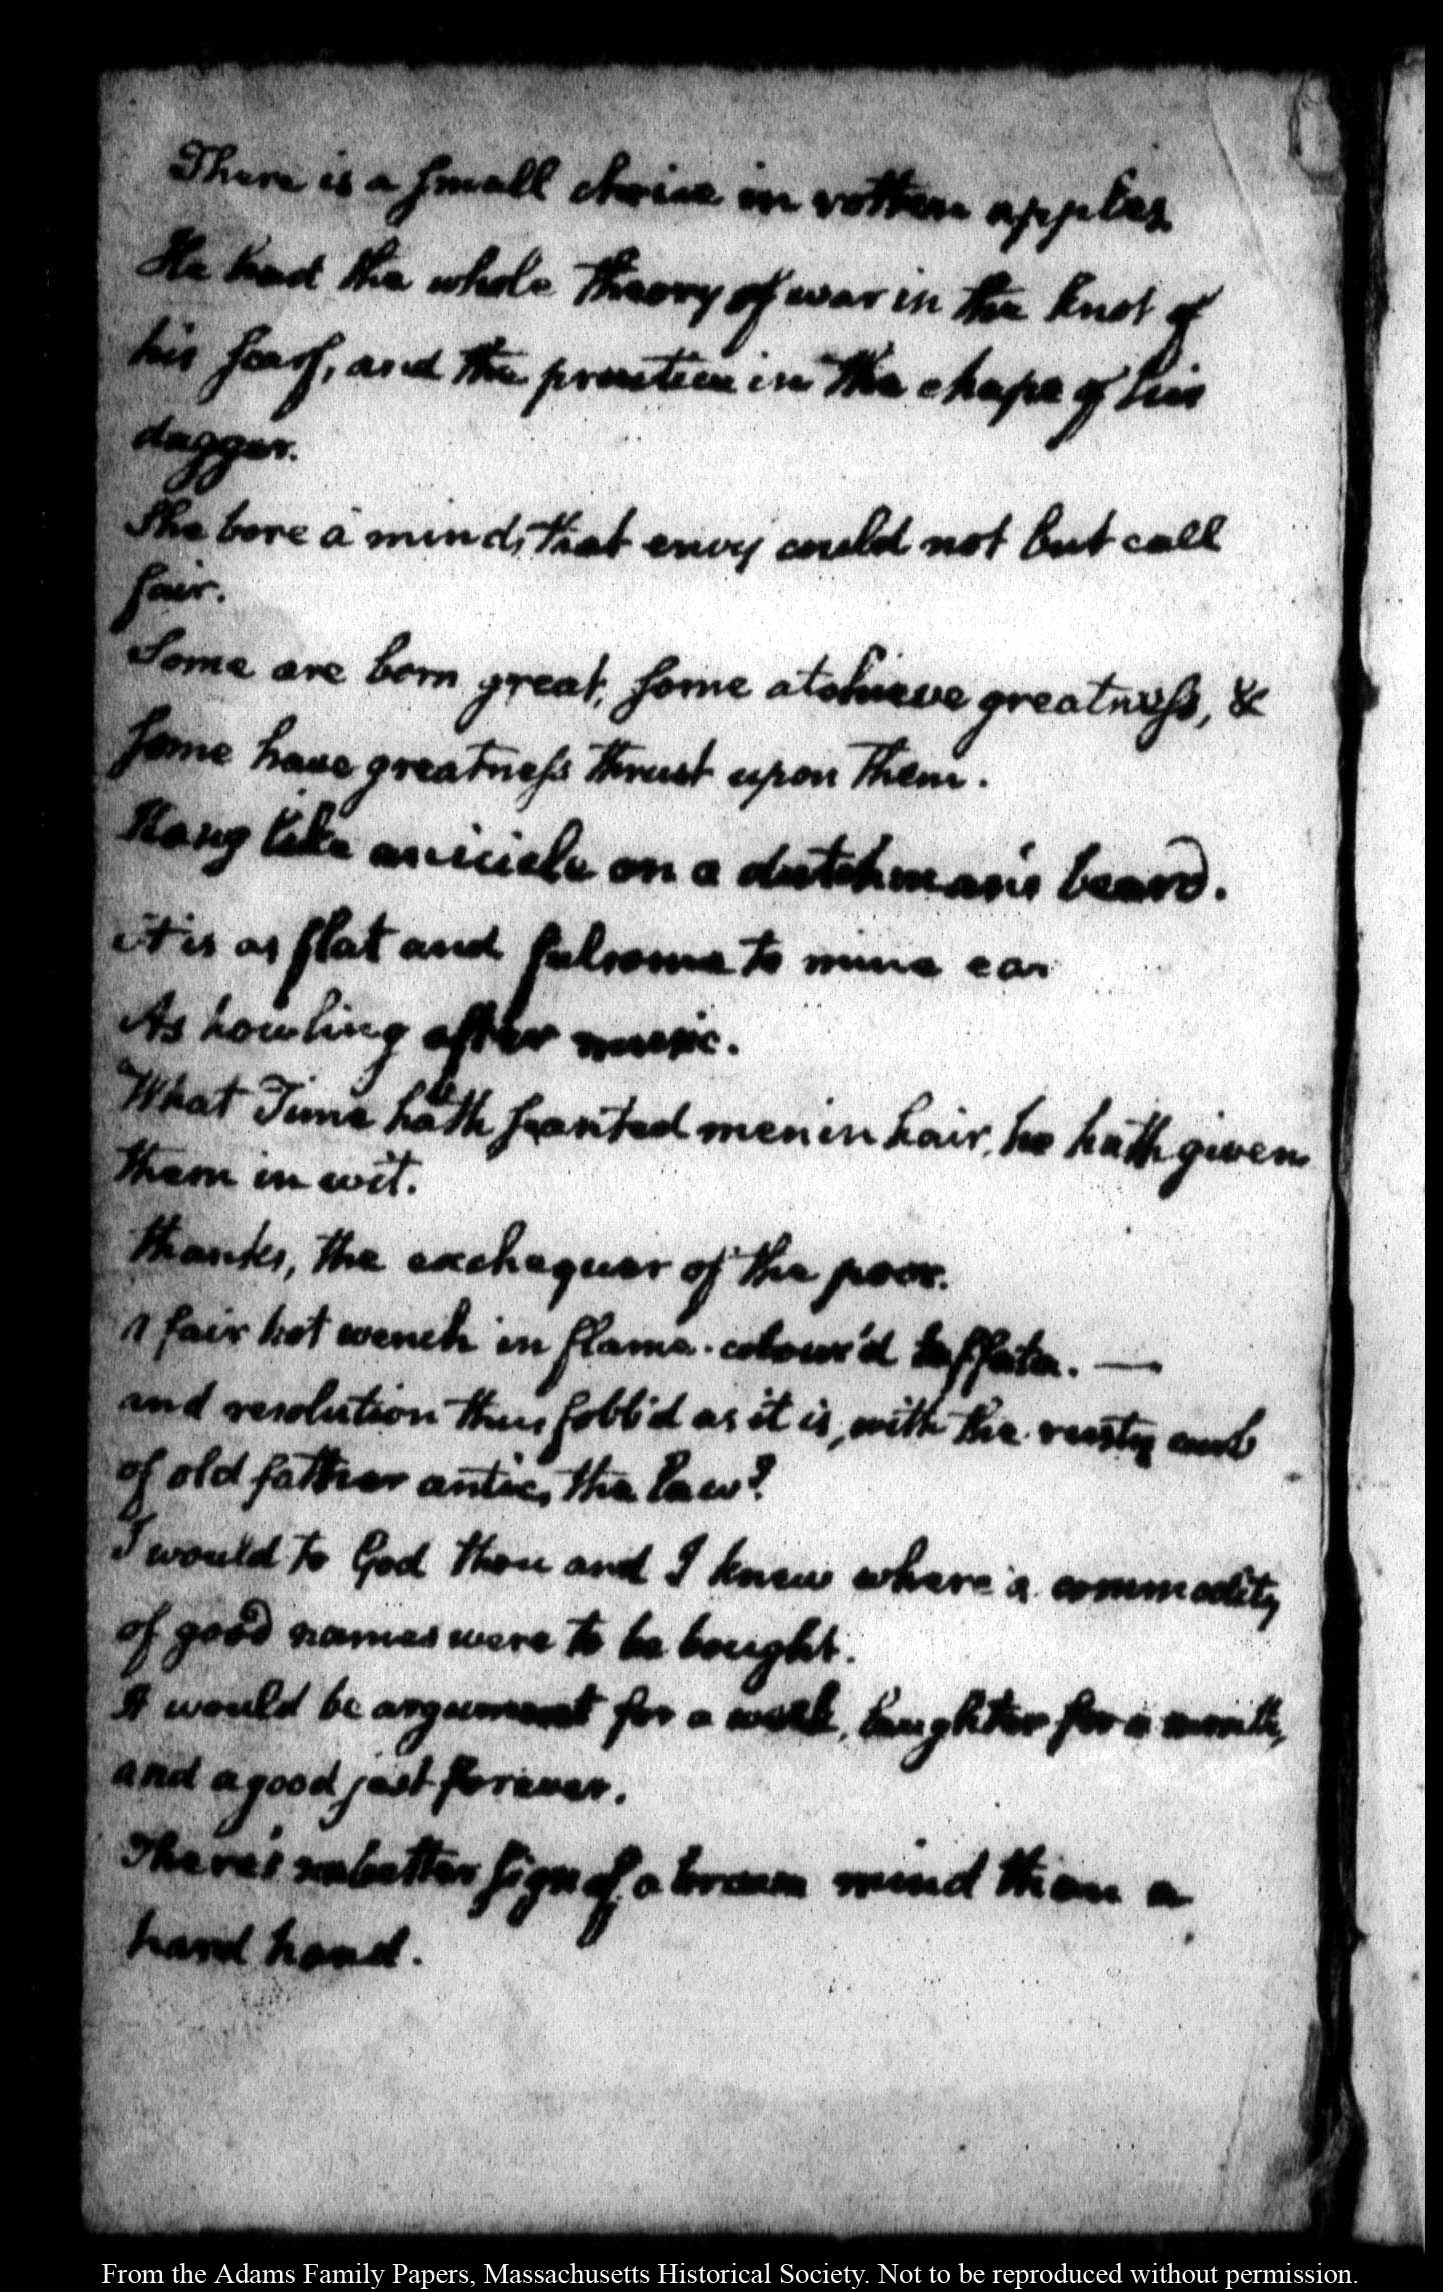 There is a small choice in rotten apples.
He had the whole theory of war in the knot of
his scarf, and the practice in the chape of his
dagger.
She bore a mind, that envy could not but call
fair.
Some are born great, some atchieve greatness, &
some have greatness thrust upon them.
Hang like an icicle on a dutchman's beard.
it is as flat and fulsome to mine ear
As howling after music.
What Time hath scanted men in hair, he hath given
them in wit.
thanks, the exchequer of the poor.
A fair hot wench in flame-colour'd taffata. —
and resolution thus fobb'd as it is, with the rusty curb
of old father antic, the law?
I would to God thou and I knew where a commodity
of good names were to be bought.
It would be argument for a week, laughter for a month,
and a good jest forever.
There's no better sign of a brave mind than a
hard hand.
From the Adams Family Papers, Massachusetts Historical Society. Not to be reproduced without permission.